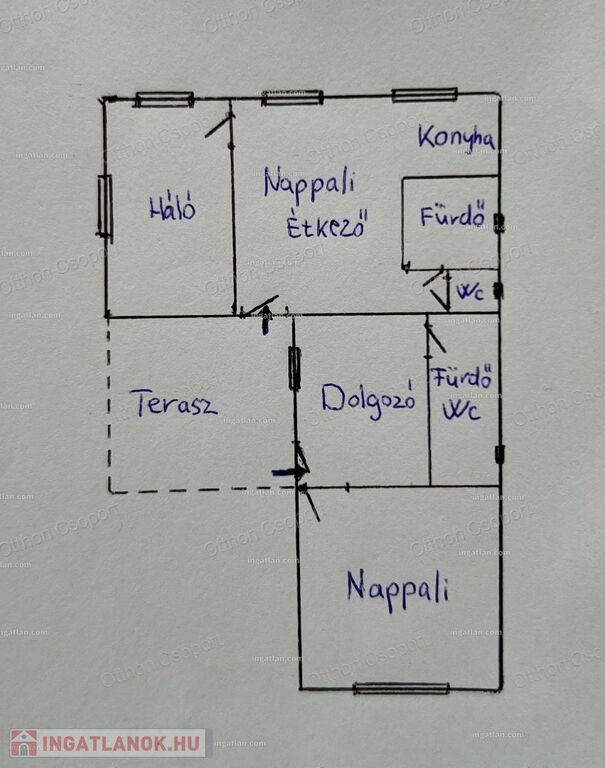 Konyha
Nappali
Étkező
Háló
Fürdő
Wc
Terasz
Dolgozó
Fürdő
Wc
Nappali
INGATLANOK.HU
Otthon Csoport
ingatlan.com